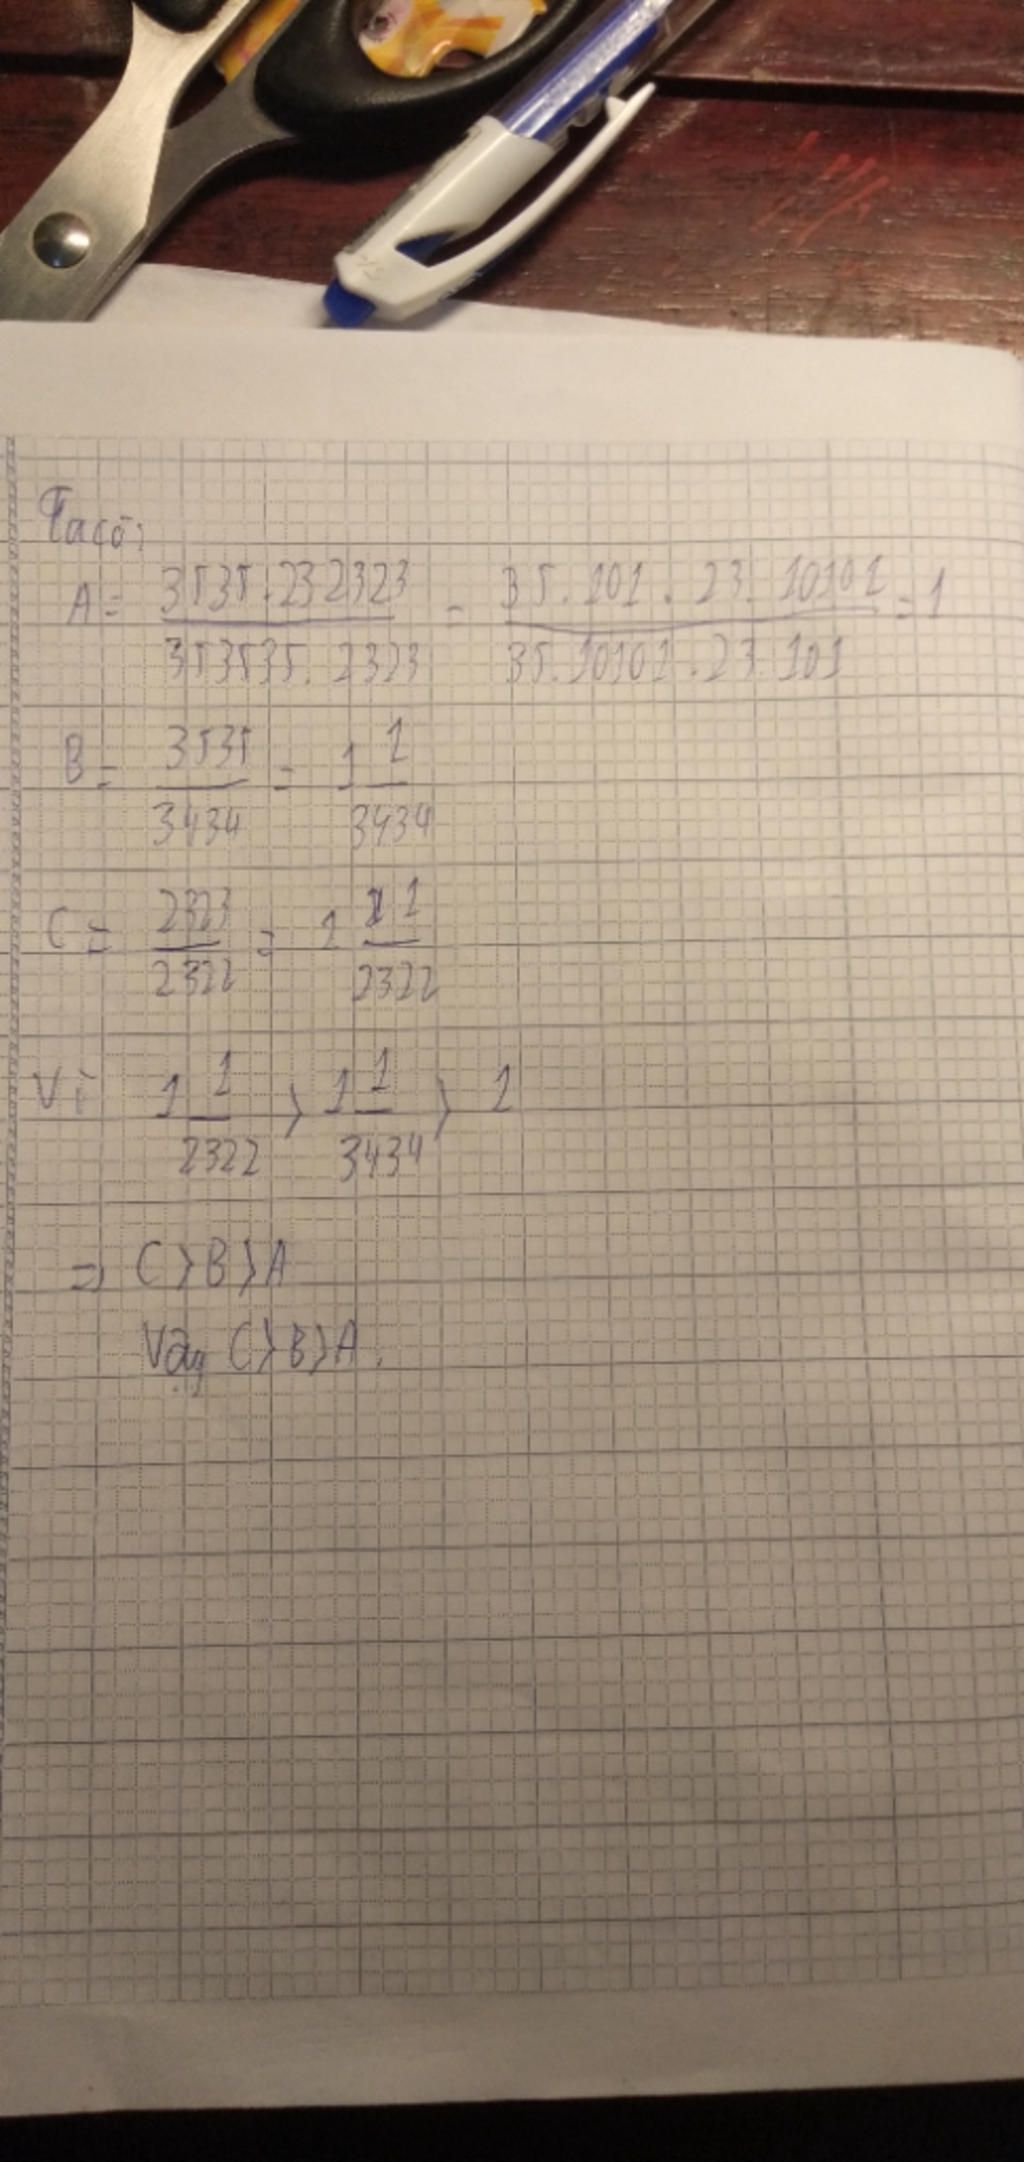 Ta có:
A = 3535.232323 / 353535.2323 = 35.101.23.10101 / 35.10101.23.101 = 1
B = 3535 / 3434 = 1 1/3434
C = 2323 / 2322 = 1 1/2322
Vì 1 1/2322 > 1 1/3434 > 1
=> C > B > A
Vậy C > B > A.